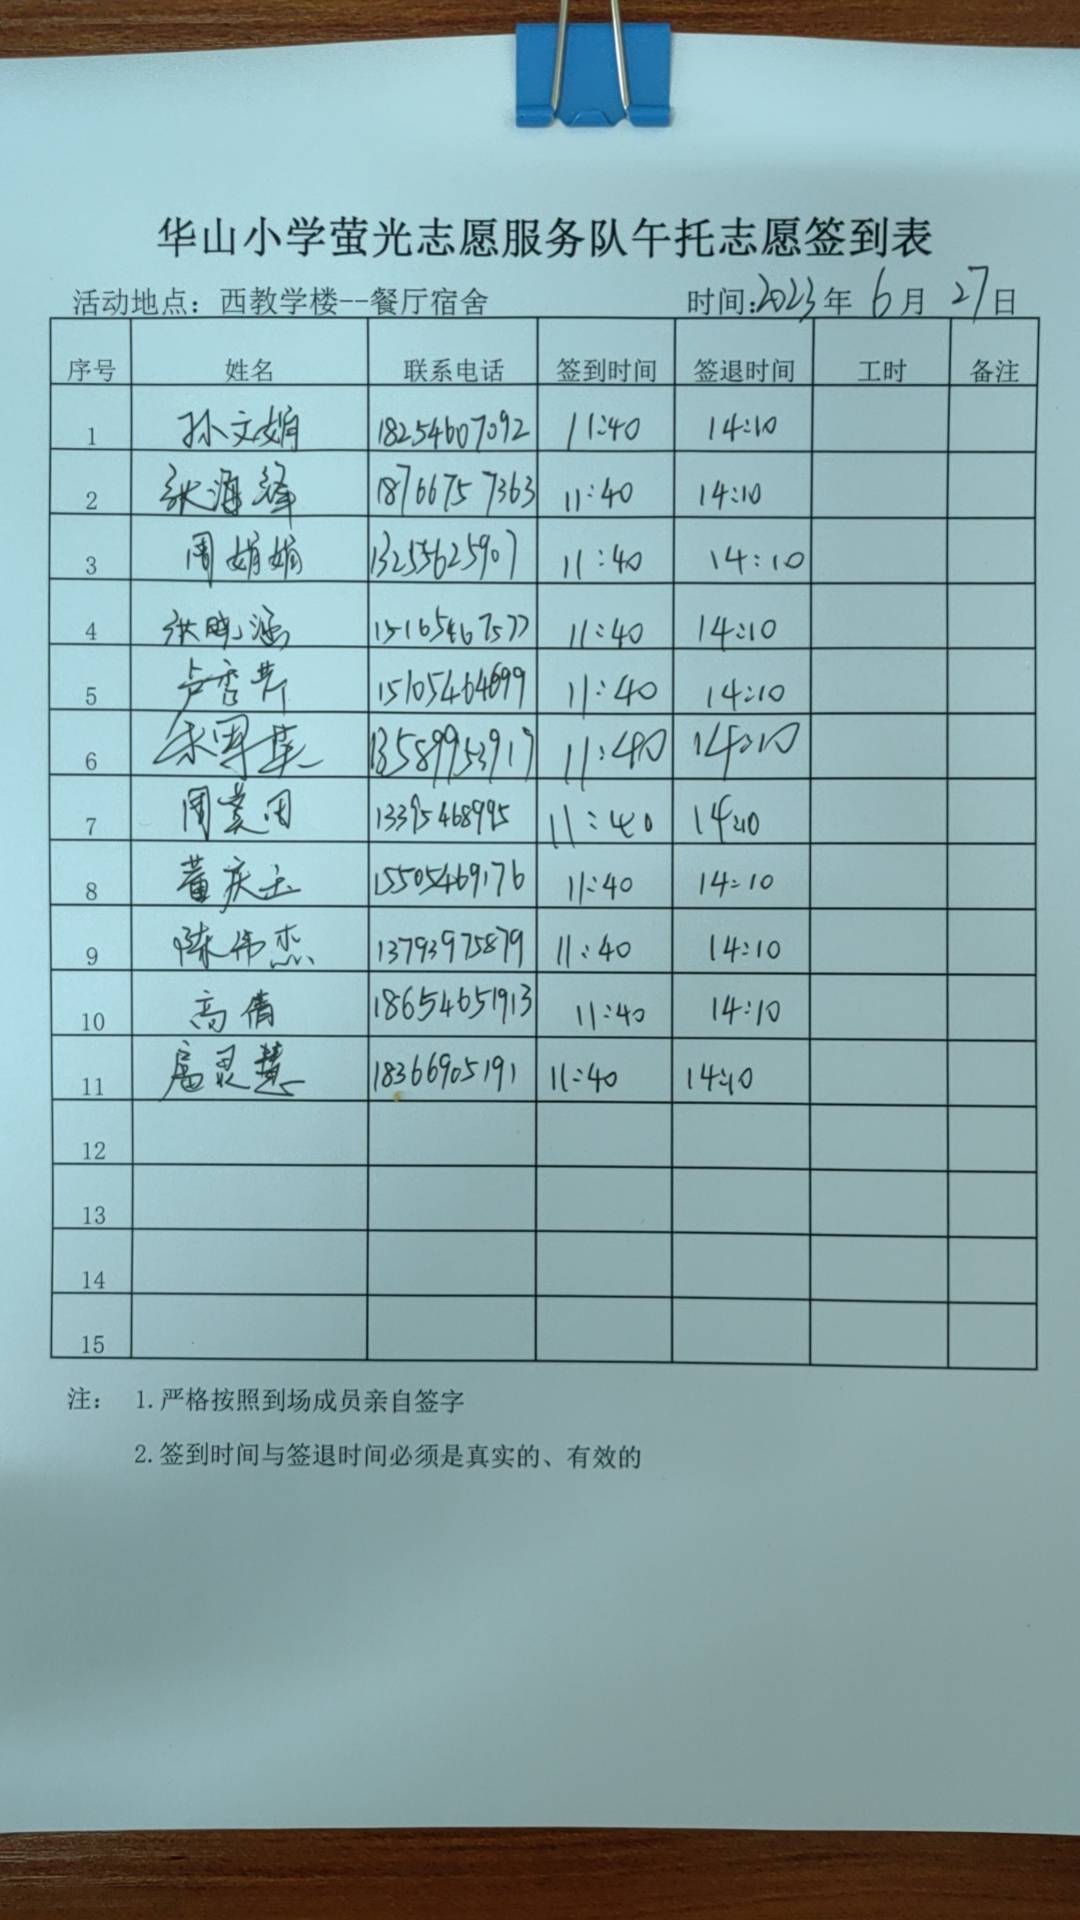 华山小学萤光志愿服务队午托志愿签到表
活动地点：西教学楼--餐厅宿舍 时间:2023年 6月 27日
序号 姓名 联系电话 签到时间 签退时间 工时 备注
1 孙文娟 18254607092 11:40 14:10
2 张海峰 18766757363 11:40 14:10
3 周娟娟 13255625907 11:40 14:10
4 张晓涵 15165467577 11:40 14:10
5 卢秀芹 15105464699 11:40 14:10
6 13589953917 11:40 14:10
7 13395468995 11:40 14:10
8 董庆玉 15505469176 11:40 14:10
9 陈伟杰 13793975879 11:40 14:10
10 高倩 18654651913 11:40 14:10
11 扈灵慧 18366905191 11:40 14:10
12
13
14
15
注： 1.严格按照到场成员亲自签字
2.签到时间与签退时间必须是真实的、有效的